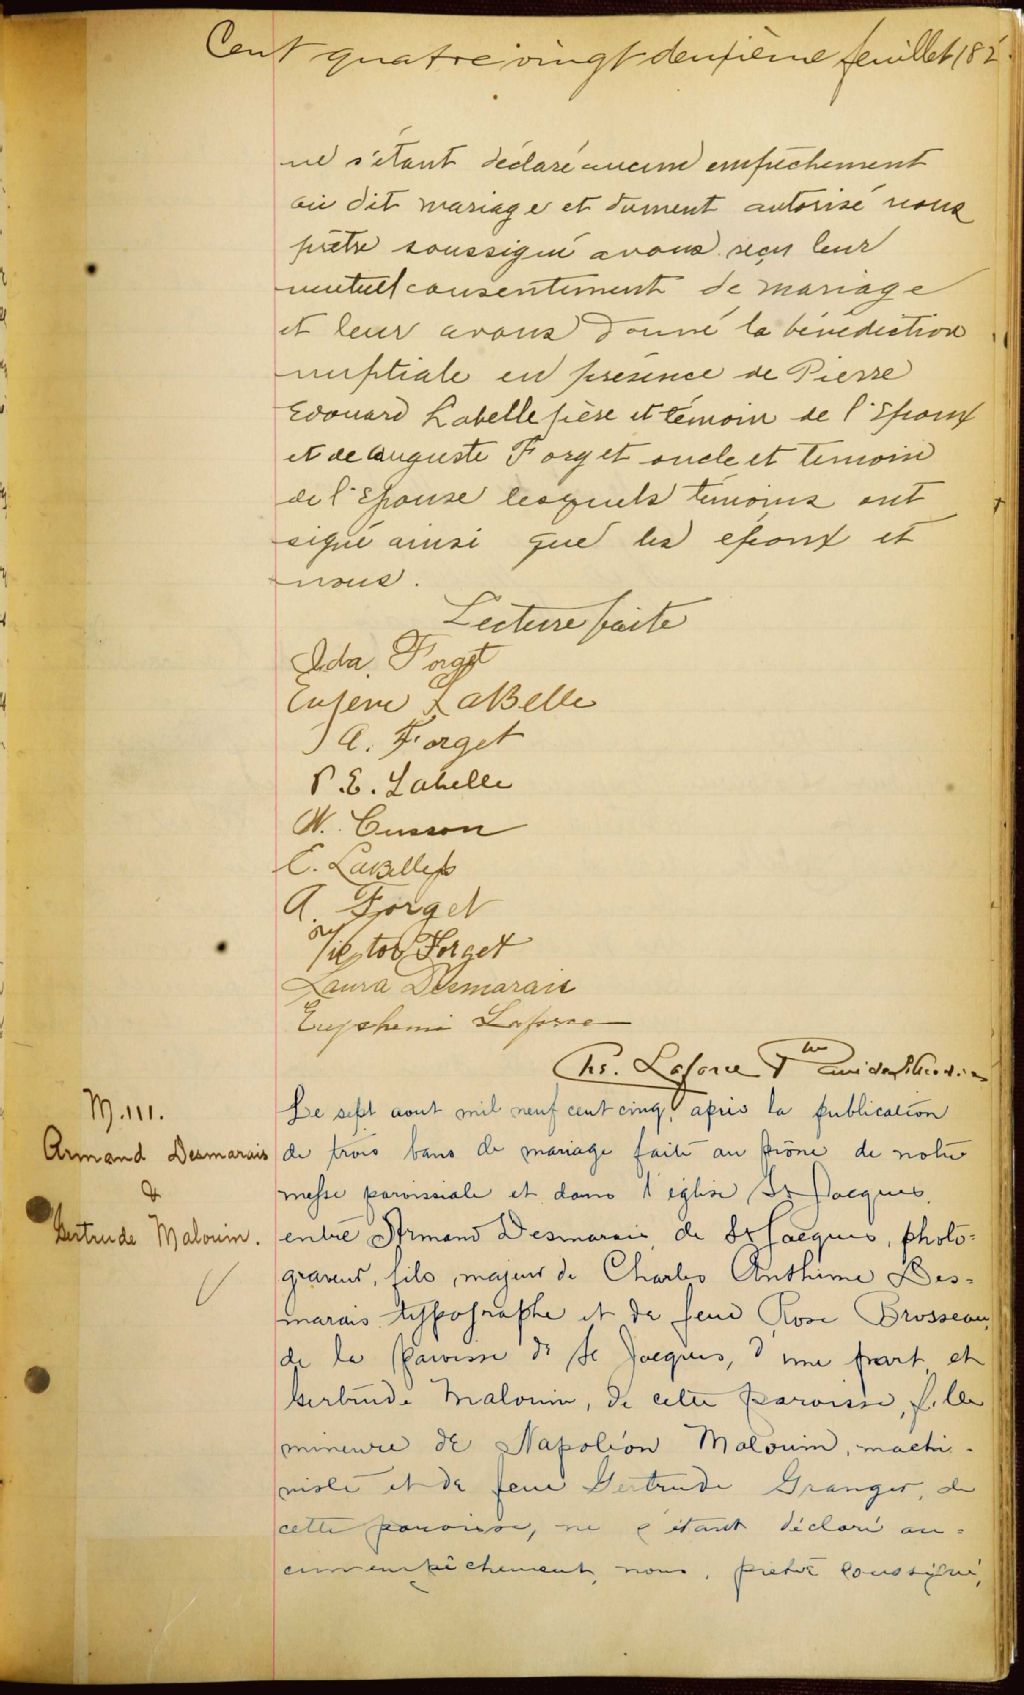 Cent quatre vingt deuxième feuillet 182
ne s'étant déclaré aucun empêchement
au dit mariage et dument autorisé nous
prêtre soussigné avons reçu leur
mutuel consentement de mariage
et leur avons donné la bénédiction
nuptiale en présence de Pierre
Edouard Labelle père et témoin de l'Epoux
et de Auguste Forget oncle et témoin
de l'Epouse lesquels témoins ont
signé ainsi que les époux et
nous.
Lecture faite
Ida Forget
Eugène LaBelle
A. Forget
P. E. Labelle
W. Cusson
E. LaBelle
A. Forget
Victor Forget
Laura Desmarais
Euphemi Laforce
Chs. Laforce Ptre
M. 111.
Armand Desmarais
&
Gertrude Malouin.
Le sept aout mil neuf cent cinq, après la publication
de trois bans de mariage faite au prône de notre
messe paroissiale et dans l'église St Jacques,
entre Armand Desmarais, de St Jacques, photo-
graveur, fils majeur de Charles Anthime Des-
marais typographe et de feue Rose Brosseau,
de la paroisse de St Jacques, d'une part, et
Gertrude Malouin, de cette paroisse, fille
mineure de Napoléon Malouin, machi-
niste et de feue Gertrude Granger, de
cette paroisse, ne s'étant déclaré au-
cun empêchement, nous, prêtre soussigné,